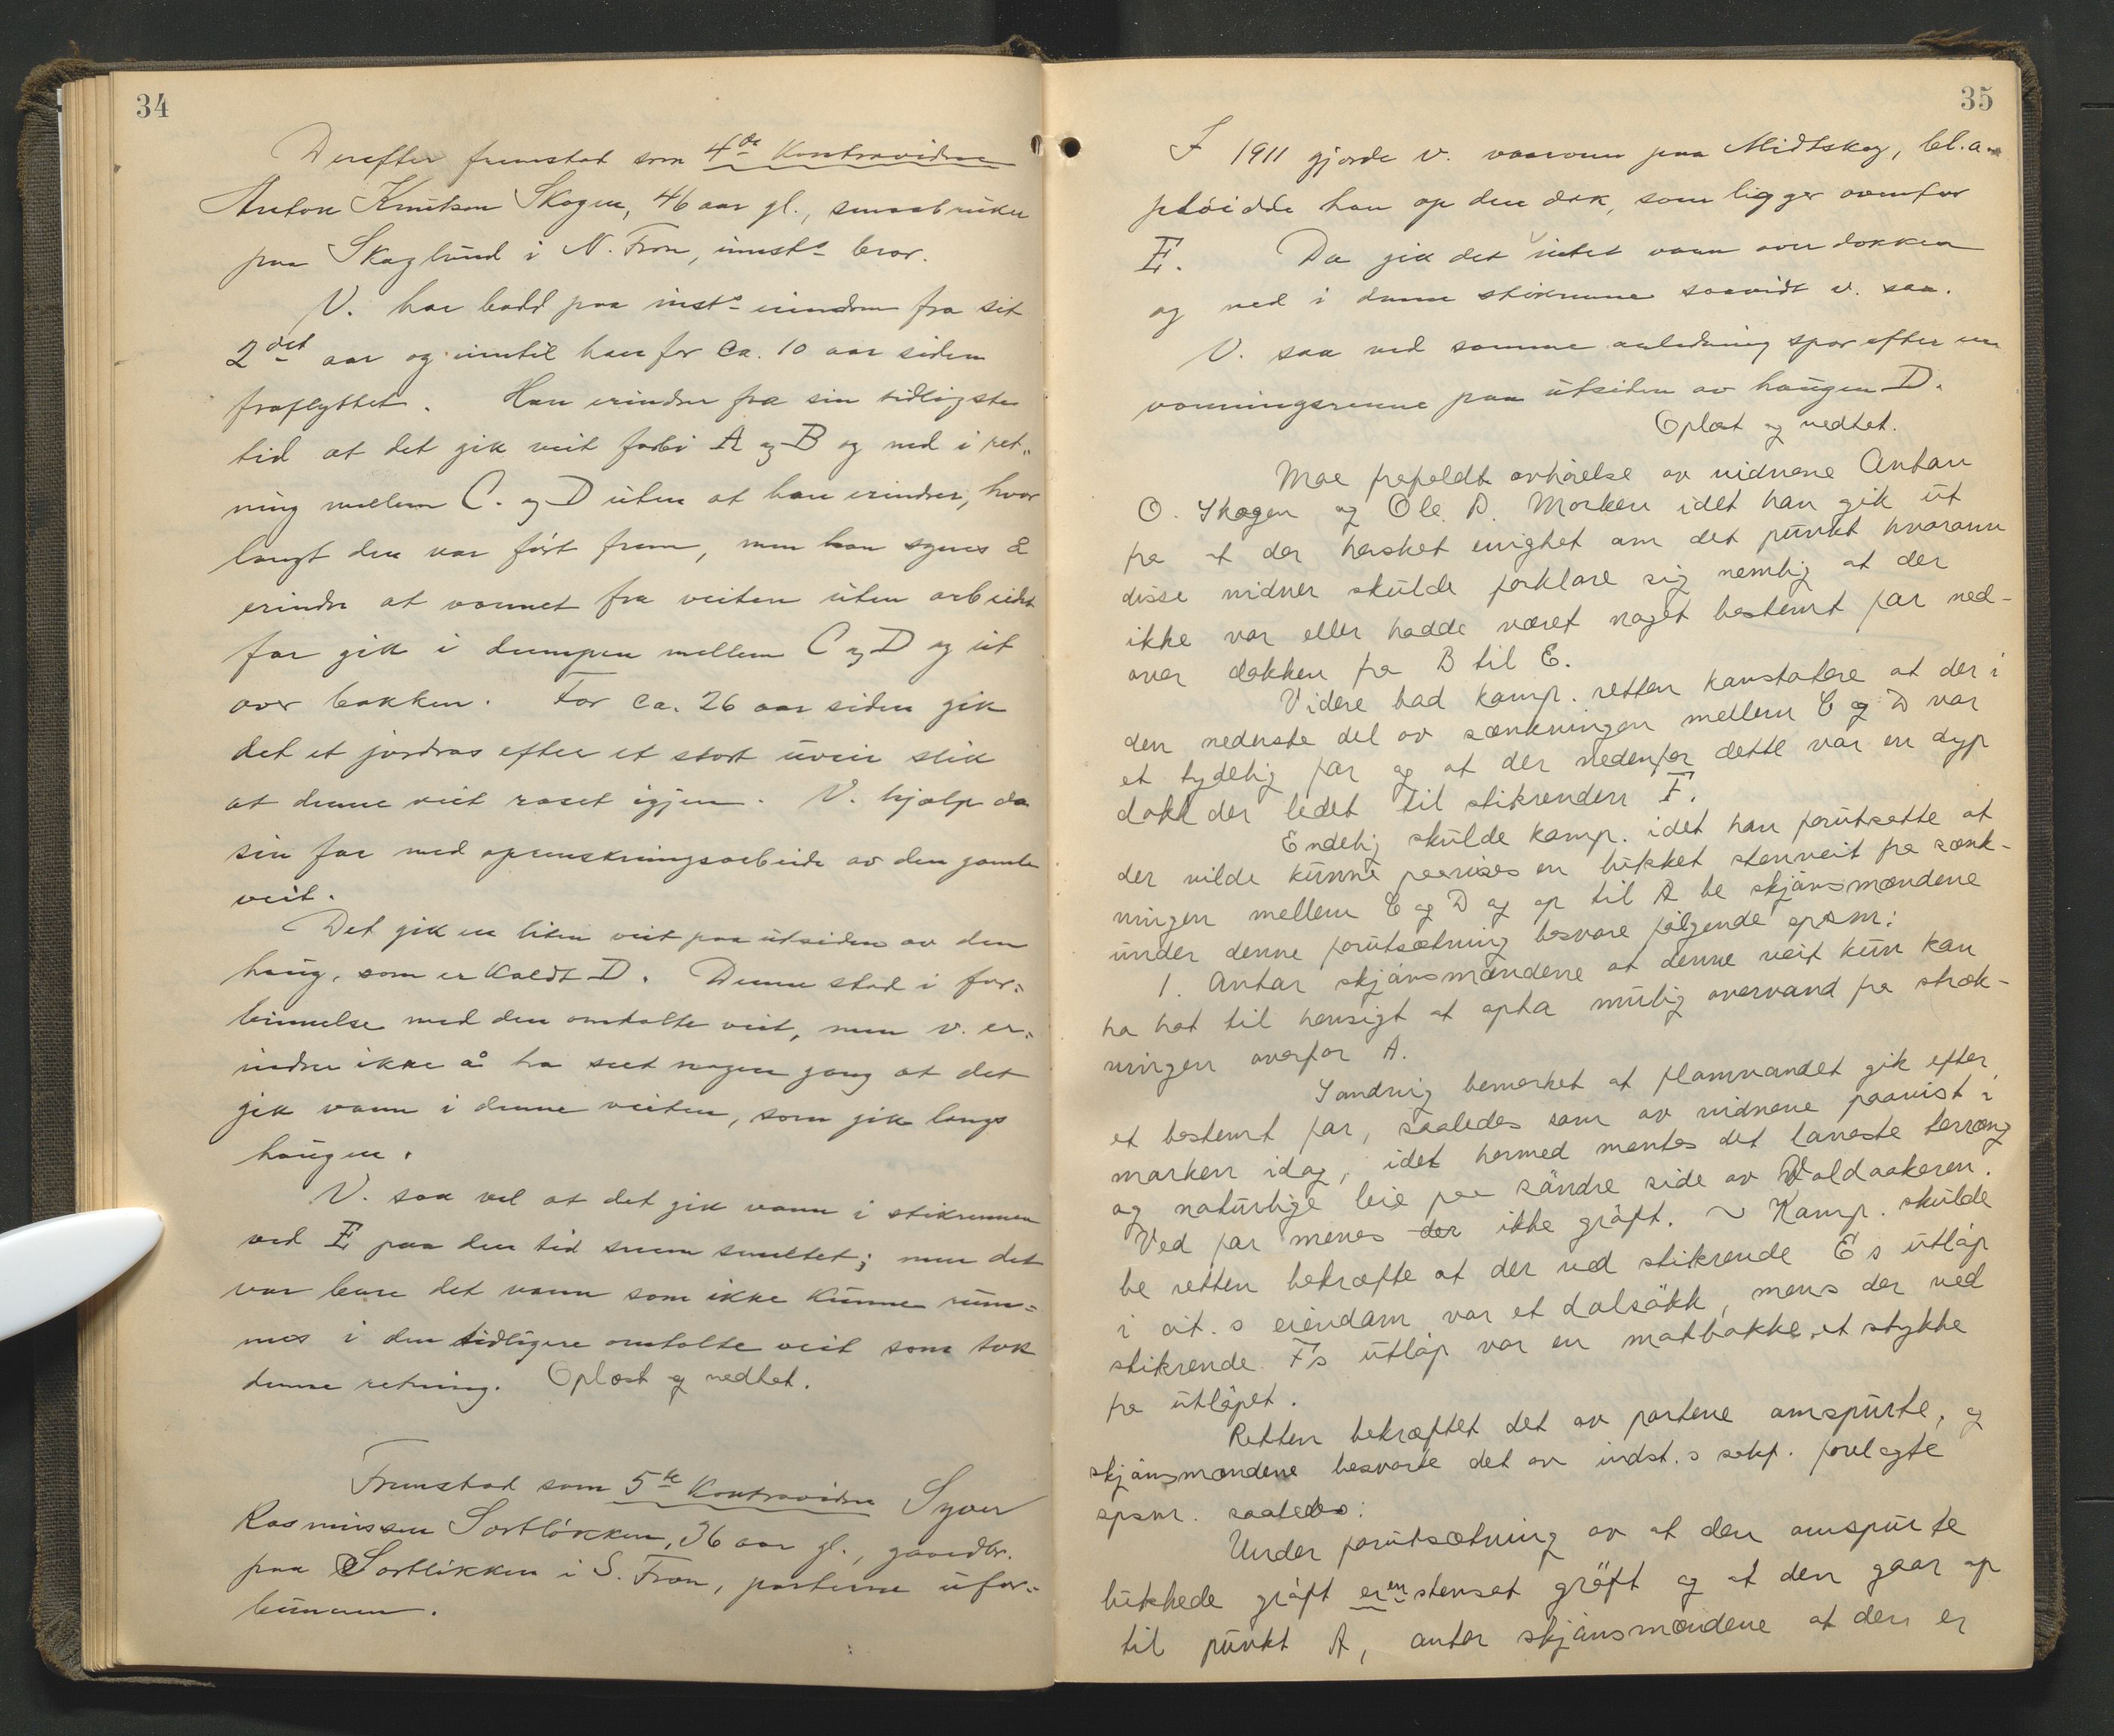 34
Derefter fremstod som 4de Kontravidne
Anton Knutson Skogen, 46 aar gl., smaabruker
paa Skaglund i N. Fron, innsts bror.
V. har bodd paa insts eiendom fra sit
2det aar og inntil han for ca. 10 aar siden
fraflyttet. Han erindrer fra sin tidligste
tid at det gik veit forbi A og B og ned i ret„
ning mellem C. og D uten at han erindrer, hvor
langt den var ført frem, men han synes å
erindre at vannet fra veiten uten arbeidet
far gik i dumpen mellem C og D og ut
over bakken. For ca. 26 aar siden gik
det et jordras efter et stort uveir slik
at denne veit raset igjen. V. hjalp da
sin far med oprenskningsarbeide av den gamle
veit.
Det gik en liten veit paa utsiden av den
haug, som er kaldt D. Denne stod i for=
binnelse med den omtalte veit, men v. er=
indrer ikke å ha seet nogen gang at det
gik vann i denne veiten, som gik langs
haugen.
V. saa vel at det gik vann i stikrennen
ved E paa den tid sneen smeltet; men det
var bare det vann som ikke kunne rum=
mes i den tidligere omtalte veit som tok
denne retning. Oplæst og vedtet.
Fremstod som 5te Kontravidne Syver
Rasmussen Sortløkken, 36 aar gl., gaardbr.
paa Sortløkken i S. Fron, parterne ufor=
bunnen.
35
I 1911 gjorde v. vaaronn paa Midtskog, bl.a.
pløidde han op den døk, som ligger ovenfor
E. Da gik det intet vann over dokken
og ned i denne stikrenne saavidt v. saa.
V. saa ved samme anledning spor efter en
vanningsrenne paa utsiden av haugen D.
Oplæst og vedtet.
Moe frafaldt avhørelse av vidnene Anton
O. Skogen og Ole D. Morken idet han gik ut
fra at der hersket enighet om det punkt hvorom
disse vidner skulde forklare sig nemlig at der
ikke var eller hadde været noget bestemt far ned-
over dokken fra B til E.
Videre bad kamp. retten konstatere at der i
den nederste del av sænkningen mellem C og D var
et tydelig far og at der nedenfor dette var en dyp
dokk der ledet til stikrenden F.
Endelig skulde kamp. idet han forutsette at
der vilde kunne paavises en lukket stenveit fra sænk-
ningen mellem C og D og op til A be skjønsmændene
under denne forutsætning besvare følgende spsm:
1. Antar skjønsmændene at denne veit kun kan
ha hat til hensigt at opta mulig overvand fra stræk-
ningen ovenfor A.
Sandvig bemerket at flomvandet gik efter
et bestemt far, saaledes som av vidnene paavist i
marken idag, idet hermed mentes det laveste terræng
og naturlige leie paa søndre side av Voldaakeren.
Ved far menes der ikke grøft. ~ Kamp. skulde
be retten bekræfte at der ved stikrende E s utløp
i cit. s eiendom var et dalsøkk, mens der ved
stikrende F's utløp var en motbakke et stykke
fra utløpet.
Retten bekræftet det av partene omspurte, og
skjønsmændene besvarte det av indst. s sakf. forelagte
spsm. saaledes:
Under forutsætning av at den omspurte
lukkede grøft er en stensat grøft og at den gaar op
til punkt A, antar skjønsmændene at den er